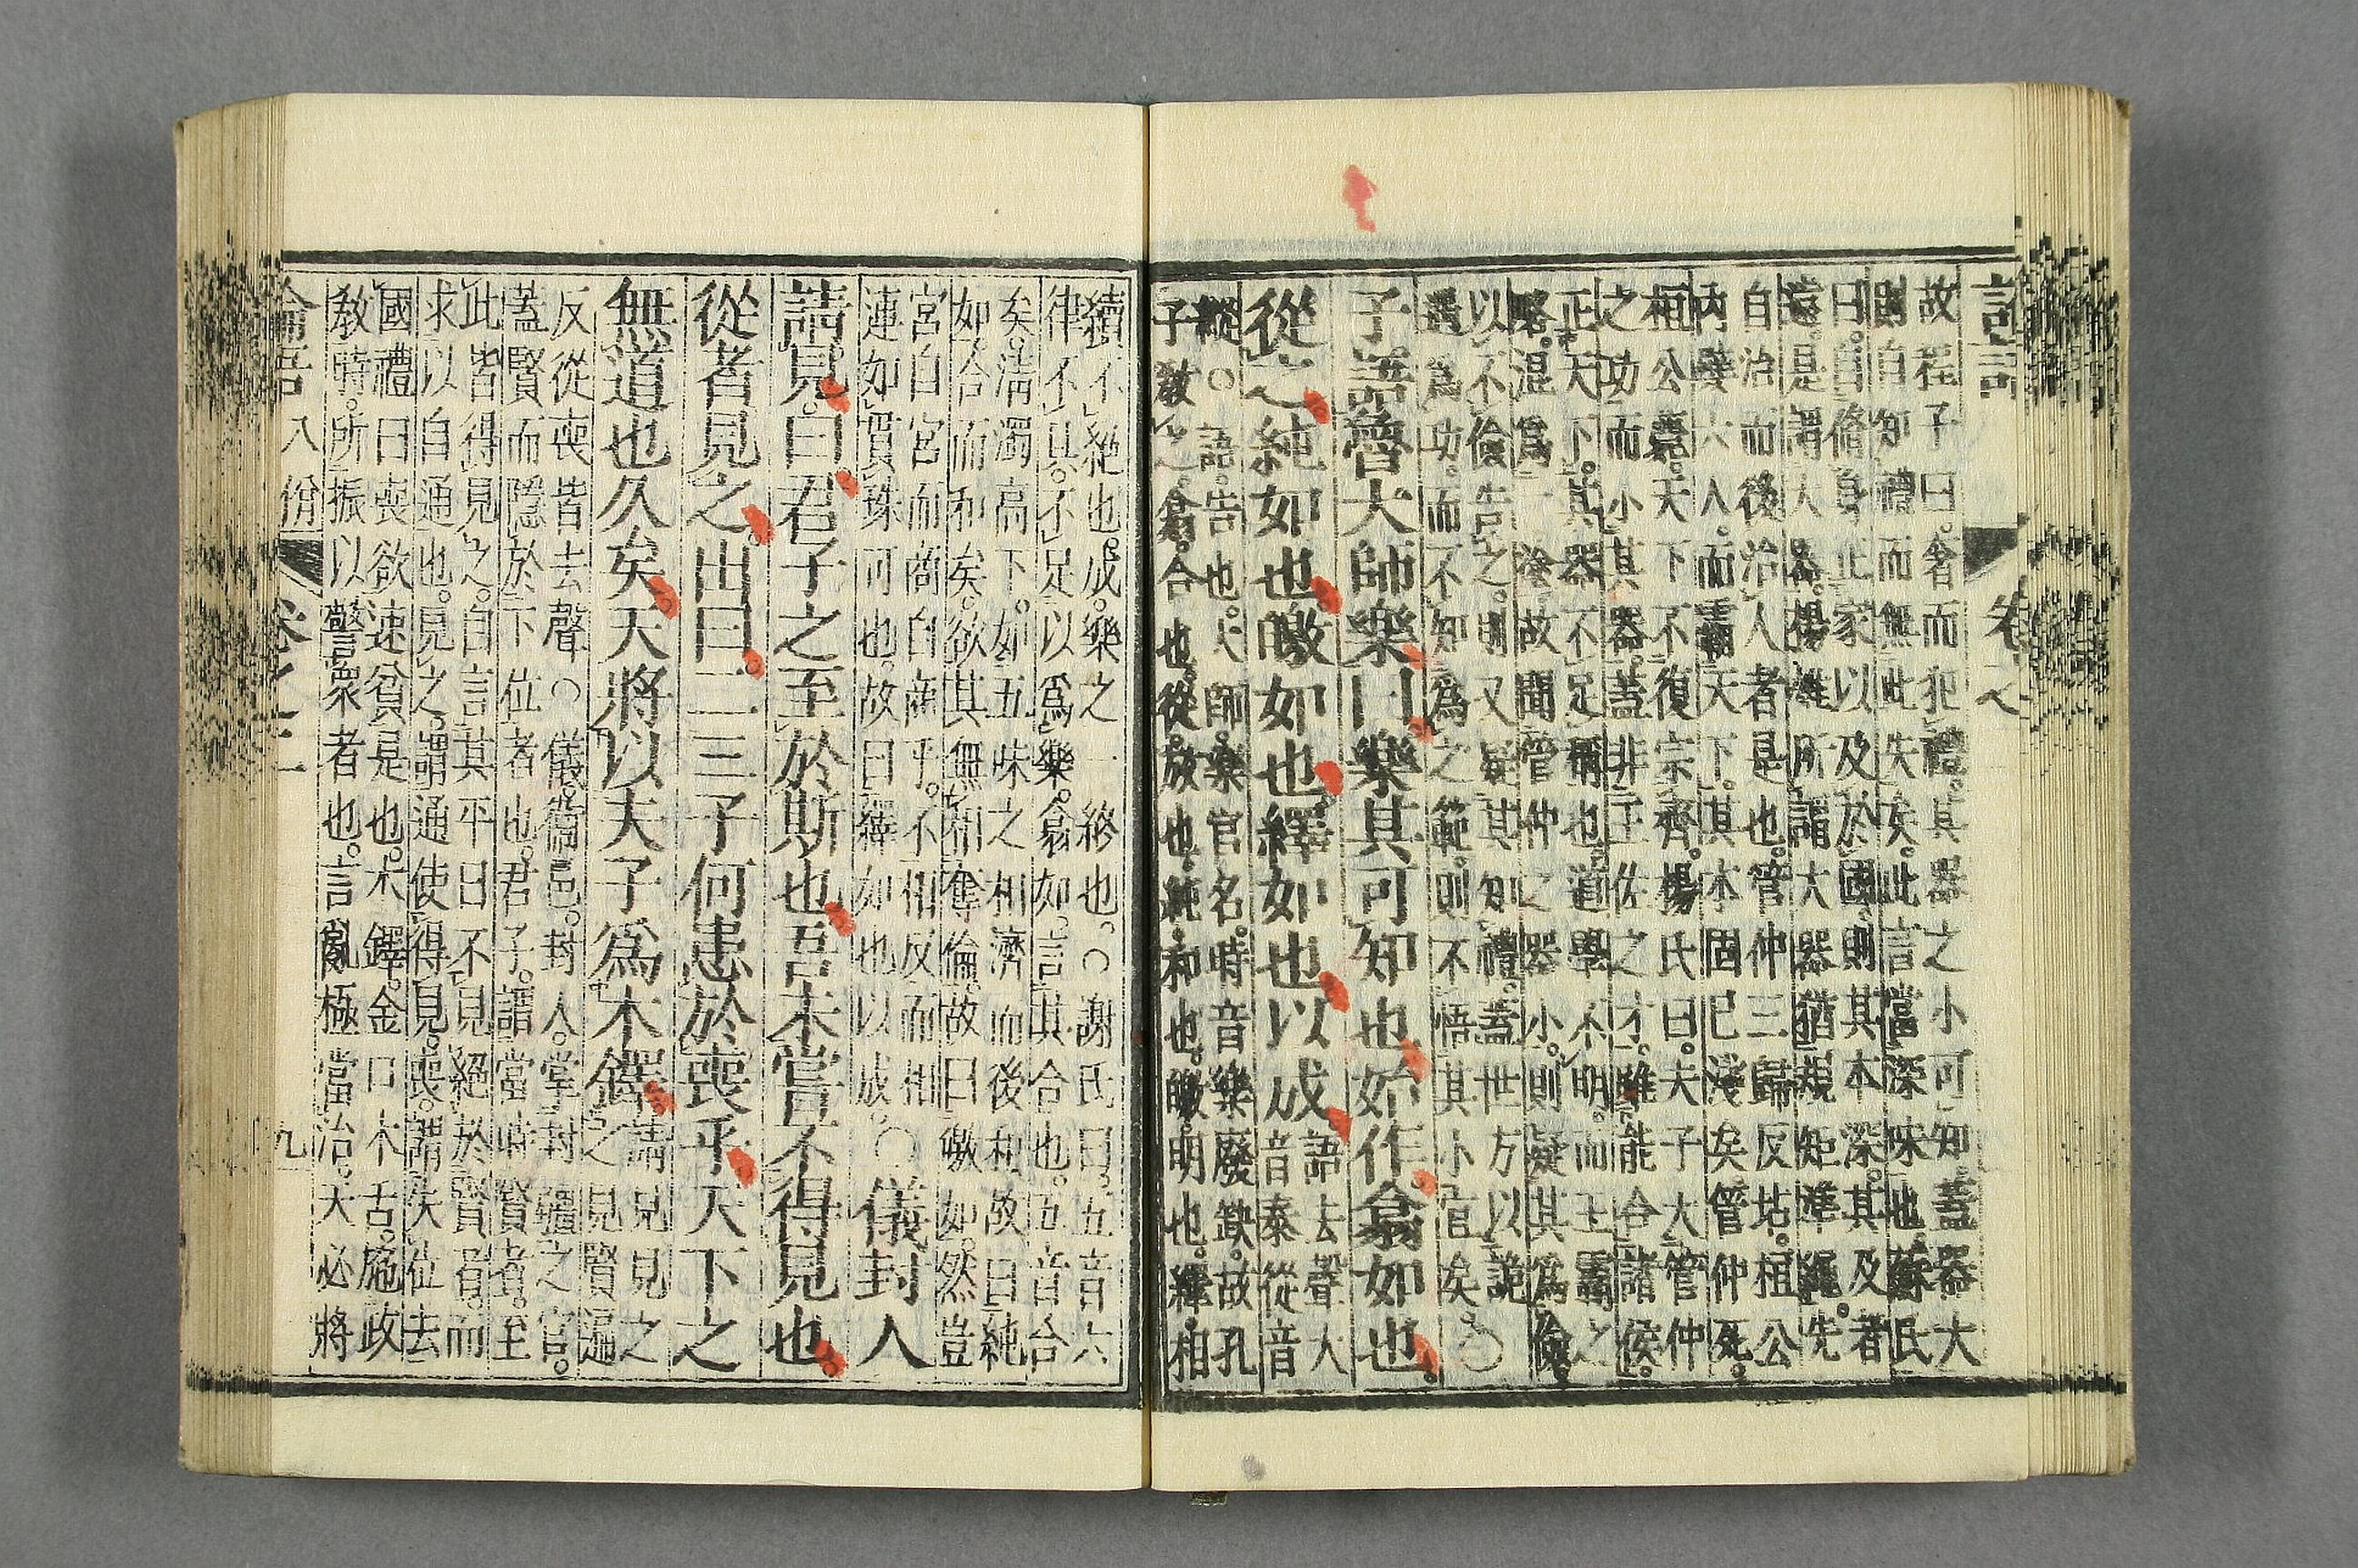 故程子曰奢而犯禮其器之小可知蓋器大
則自知禮而無此失矣此言當深味也蘇氏
曰自脩身正家以及於國則其本深其及者
遠是謂大器揚雄所謂大器猶規矩準繩先
自治而後治人者是也管仲三歸反坫桓公
內嬖六人而霸天下其本固已淺矣管仲死
桓公薨天下不復宗齊楊氏曰夫子大管仲
之功而小其器蓋非王佐之才雖能合諸侯
正天下其器不足稱也道學不明而王霸之
略混爲一塗故聞管仲之器小則疑其爲儉
以不儉告之則又疑其知禮蓋世方以詭
遇爲功而不知爲之範則不悟其小宜矣○
子語魯大師樂曰樂其可知也始作翕如也
從之純如也皦如也繹如也以成
語去聲大
音泰從音
縱○語告也大師樂官名時音樂廢缺故孔
子敎之翕合也從放也純和也皦明也繹相
續不絕也成樂之一終也○謝氏曰五音六
律不具不足以爲樂翕如言其合也五音合
矣淸濁高下如五味之相濟而後和故曰純
如合而和矣欲其無相奪倫故曰皦如然豈
宮自宮而商自商乎不相反而相
連如貫珠可也故曰繹如也以成○儀封人
請見曰君子之至於斯也吾未嘗不得見也
從者見之出曰二三子何患於喪乎天下之
無道也久矣天將以夫子爲木鐸
請見見之
之見賢遍
反從喪皆去聲○儀衞邑封人掌封疆之官
蓋賢而隱於下位者也君子謂當時賢者至
此皆得見之自言其平日不見絕於賢者而
求以自通也見之謂通使得見喪謂失位去
國禮曰喪欲速貧是也木鐸金口木舌施政
敎時所振以警衆者也言亂極當治天必將
八佾 卷之二 九